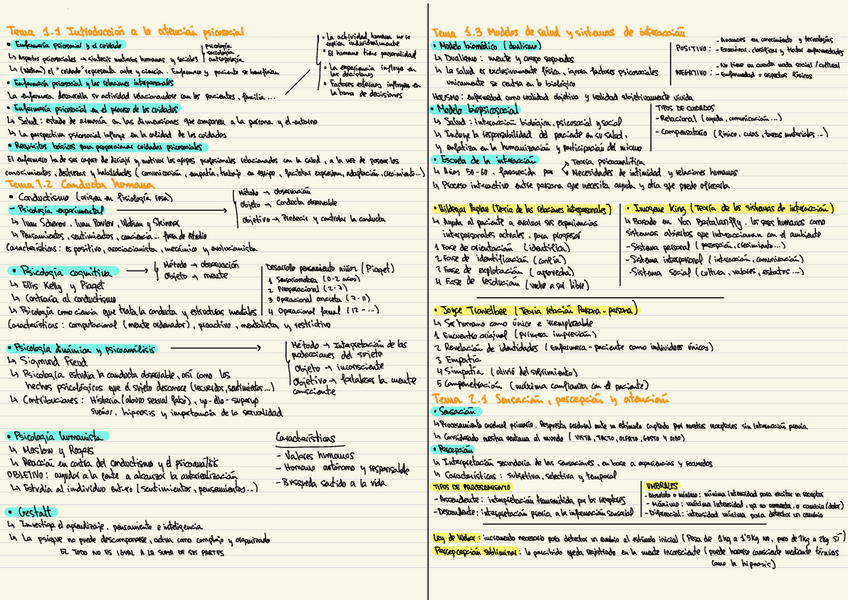 Tema 1.1 Introducción a la atención psicosocial
• Enfermería psicosocial y el cuidado
↳ Aspectos psicosociales → sintetiza materias humanas y sociales
psicología
sociología
antropología
↳ (Watson) el "cuidado" representa arte y ciencia. Enfermero y paciente se benefician
• La actividad humana no se explica individualmente
• El humano tiene personalidad
• La experiencia influye en las decisiones
• Factores externos influyen en la toma de decisiones
• Enfermería psicosocial y las relaciones interpersonales
La enfermera desarrolla su actividad relacionandose con los pacientes, familia ...
• Enfermería psicosocial en el proceso de los cuidados
↳ Salud: estado de armonía en las dimensiones que componen a la persona y el entorno
↳ La perspectiva psicosocial influye en la calidad de los cuidados
• Requisitos básicos para proporcionar cuidados psicosociales
El enfermero ha de ser capaz de dirigir y motivar los grupos profesionales relacionados con la salud, a la vez de poseer los
conocimientos, destrezas y habilidades (comunicación, empatía, trabajo en equipo, facilitar expresión, adaptación, crecimiento...)
Tema 1.2 Conducta humana
• Conductismo (origen en fisiología rusa)
- Psicología experimental
↳ Ivan Sechenov, Ivan Pavlov, Watson y Skinner
↳ Pensamientos, sentimientos, conciencia... fuera de estudio
Características: es positivo, asociacionista, mecánico y evolucionista
Método → observación
Objeto → Conducta observable
objetivo → Predecir y controlar la conducta
• Psicología cognitiva
↳ Ellis Kelly y Piaget
↳ Contraria al conductismo
↳ Psicología como ciencia que trata la conducta y estructuras mentales
Características: computacional (mente ordenador), proactivo, mentalista y restrictivo
Método → observación
objeto → mente
Desarrollo pensamiento niños (Piaget)
1 Sensoriomotora (0-2 años)
2 Preoperacional (2-7)
3 Operacional concreta (7-11)
4 Operacional formal (12-...)
• Psicología dinámica y psicoanálisis
↳ Sigmund Freud
↳ Psicología estudia la conducta observable, así como los
hechos psicológicos que el sujeto desconoce (recuerdos, sentimientos...)
↳ Contribuciones: Histeria (abuso sexual falso), yo-ello-superyo
sueños, hipnosis y importancia de la sexualidad
Método → Interpretación de las producciones del sujeto
objeto → inconsciente
Objetivo → fortalecer la mente consciente
• Psicología humanista
↳ Maslow y Rogers
↳ Reacción en contra del conductismo y el psicoanálisis
OBJETIVO: ayudar a la gente a alcanzar la autorrealización
↳ Estudia al individuo entero (sentimientos, pensamientos...)
Características
- Valores humanos
- Humano autónomo y responsable
- Búsqueda sentido a la vida
• Gestalt
↳ Investiga el aprendizaje, pensamiento e inteligencia
↳ La psique no puede descomponerse, actua como complejo y organizado
EL TODO NO ES IGUAL A LA SUMA DE SUS PARTES
Tema 1.3 Modelos de salud y sistemas de interacción
• Modelo biomédico (dualismo)
↳ Dualismo: mente y cuerpo separados
↳ La salud es exclusivamente física, ignora factores psicosociales
unicamente se centra en lo biológico
POSITIVO:
- Avances en conocimiento y tecnologías
- Examinar, clasificar y tratar enfermedades
NEGATIVO:
- No tiene en cuenta nada social / cultural
- Enfermedad = aspectos físicos
HOLISMO: enfermedad como realidad objetiva y realidad subjetivamente vivida
• Modelo biopsicosocial
↳ Salud: interacción biológica, psicosocial y social
↳ Incluye la responsabilidad del paciente en su salud,
y enfatiza en la humanización y participación del mismo
TIPOS DE CUIDADOS
- Relacional (ayuda, comunicación...)
- Compensatorio (físico, curas, tareas materiales...)
• Escuela de la interacción
↳ Años 50-60, favorecida por
Teoría psicoanalítica
Necesidades de intimidad y relaciones humanas
↳ Proceso interactivo entre persona que necesita ayuda y otra que puede ofrecerla
• Hildegar Peplau (Teoría de las relaciones interpersonales)
↳ Ayuda al paciente a evaluar sus experiencias
interpersonales actuales, para progresar
1 Fase de orientación (identifica)
2 Fase de identificación (confía)
3 Fase de explotación (aprovecha)
4 Fase de resolución (vuelve a ser libre)
• Imogene King (Teoría de los sistemas de interacción)
↳ Basado en Von Bertalanffy. los seres humanos como
sistemas abiertos que interaccionan con el ambiente
- Sistema personal (percepción, crecimiento...)
- Sistema interpersonal (interacción, comunicación)
- Sistema social (cultura, valores, estatus...)
• Joyce Travelbee (Teoría relación Persona-persona)
↳ Ser humano como único e irremplazable
1 Encuentro original (primera impresión)
2 Revelación de identidades (Enfermera-paciente como individuos únicos)
3 Empatía
4 Simpatía (alivio del sufrimiento)
5 Compenetración (máxima confianza con el paciente)
Tema 2.1 Sensación, percepción y atención
• Sensación
↳ Procesamiento cerebral primario. Respuesta cerebral ante un estímulo captado por nuestros receptores sin interpretación previa
↳ Considerado nuestra ventana al mundo (VISTA, TACTO, OLFATO, GUSTO Y OÍDO)
• Percepción
↳ Interpretación secundaria de las sensaciones, en base a experiencias y recuerdos
↳ Características: subjetiva, selectiva y temporal
TIPOS DE PROCESAMIENTO
- Ascendente: interpretación transmitida por los receptores
- Descendente: interpretación previa a la información sensorial
UMBRALES
- Absoluto o mínimo: mínima intensidad para excitar un receptor
- Máximo: máxima intensidad, ya no aumenta, o cambia (dolor)
- Diferencial: intensidad mínima para detectar un cambio
Ley de Weber: incremento necesario para detectar un cambio al estímulo inicial (Pesa de 1kg a 1'5kg no, pero de 1kg a 2kg SI)
Percepción subliminal: lo percibido queda registrado en la mente inconsciente (puede hacerse consciente mediante técnicas
como la hipnosis)